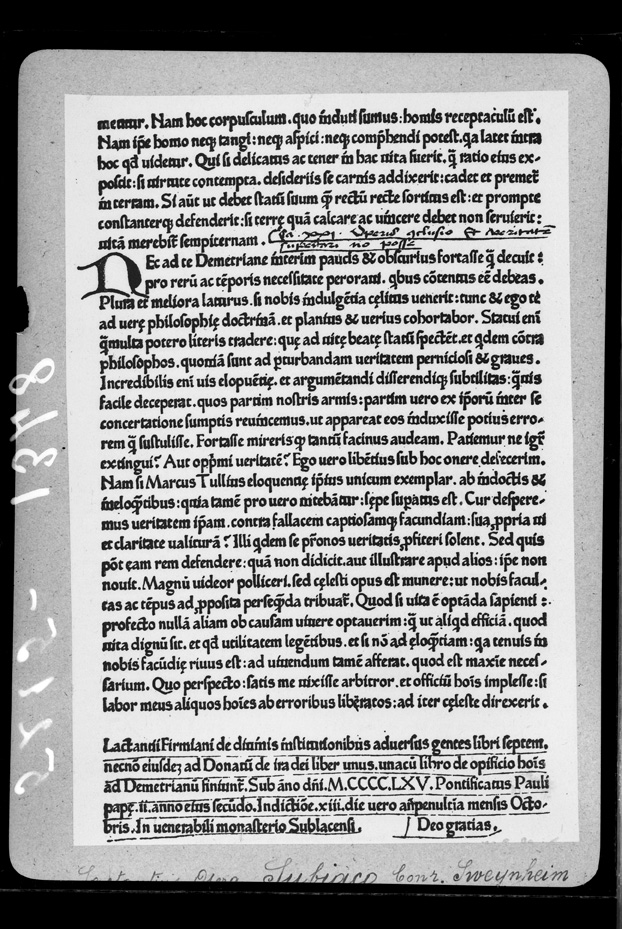 mentur. Nam hoc corpusculum. quo īduti sumus: homīs receptaculū est.
Nam ip̄e homo neq; tangi: neq; aspici: neq; comp̄hendi potest. qa latet intra
hoc qđ uidetur. Qui si delicatus ac tener in hac uita fuerit. q̄ ratio eius ex-
poscit: si uirtute contempta. desideriis se carnis addixerit: cadet et premet̄
in terram. Si aūt ut debet statū suum q̄ rectū recte sortitus est: et prompte
constanterq; defenderit: si terrę quā calcare ac uincere debet non seruierit:
uitā merebit̄ sempiternam. Ca. xxi. Operis 
DEc ad te Demetriane interim paucis & obscurius fortasse q̄ decuit:
pro rerū ac tēporis necessitate peroraui. qbus cōtentus eē debeas.
Plura et meliora laturus. si nobis indulgētia cęlitus uenerit: tunc & ego tē
ad uerę philosophię doctrinā. et planius & uerius cohortabor. Statui enī
q̄multa potero literis tradere: quę ad uitę beatę statū spectēt. et qdem cōtra
philosophos. quoniā sunt ad ꝑturbandam ueritatem perniciosi & graues.
Incredibilis enī uis eloquētię. et argumētandi disserendiq; subtilitas: q̄uis
facile deceperat. quos partim nostris armis: partim uero ex ip̄orū inter se
concertatione sumptis reuincemus. ut appareat eos induxisse potius erro-
rem q̄ sustulisse. Fortasse mireris ꝙ tantū facinus audeam. Patiemur ne igr̄
extingui? Aut opp̄mi ueritatē? Ego uero libētius sub hoc onere defecerim.
Nam si Marcus Tullius eloquentię ip̄ius unicum exemplar. ab indoctis &
ineloq̄tibus: quia tamē pro uero nitebātur: sępe suꝑatus est. Cur despere-
mus ueritatem ip̄am. contra fallacem captiosamq; facundiam: sua ꝓpria ui
et claritate ualiturā? Illi qdem se pr̄onos ueritatis ꝓfiteri solent. Sed quis
pōt eam rem defendere: quā non didicit. aut illustrare apud alios: ip̄e non
nouit. Magnū uideor polliceri. sed cęlesti opus est munere: ut nobis facul-
tas ac tēpus ad ꝓposita perseq̄da tribuat̄. Quod si uita ē optāda sapienti:
profecto nullā aliam ob causam uiuere optauerim: q̄ ut aliqd efficiā. quod
uita dignū sit. et qđ utilitatem legētibus. et si nō ad eloq̄tiam: qa tenuis in
nobis facūdię riuus est: ad uiuendum tamē afferat. quod est maxīe neces-
sarium. Quo perspecto: satis me uixisse arbitror. et officiū hoīs implesse: si
labor meus aliquos hoīes ab erroribus liberatos: ad iter cęleste direxerit.
Lactantii Firmiani de diuinis institutionibus aduersus gentes libri septem.
necnō eiusdeʒ ad Donatū de ira dei liber unus. unacū libro de opificio hoīs
ad Demetrianū finiunt̄. Sub āno dn̄i. M.CCCC.LXV. Pontificatus Pauli
papę. ii. anno eius secūdo. Indictiōe. xiii. die uero an̄penultīa mensis Octo-
bris. In uenerabili monasterio Sublacensi. Deo gratias.
Opera Subiaco Conr. Sweynheim
2212- 1378